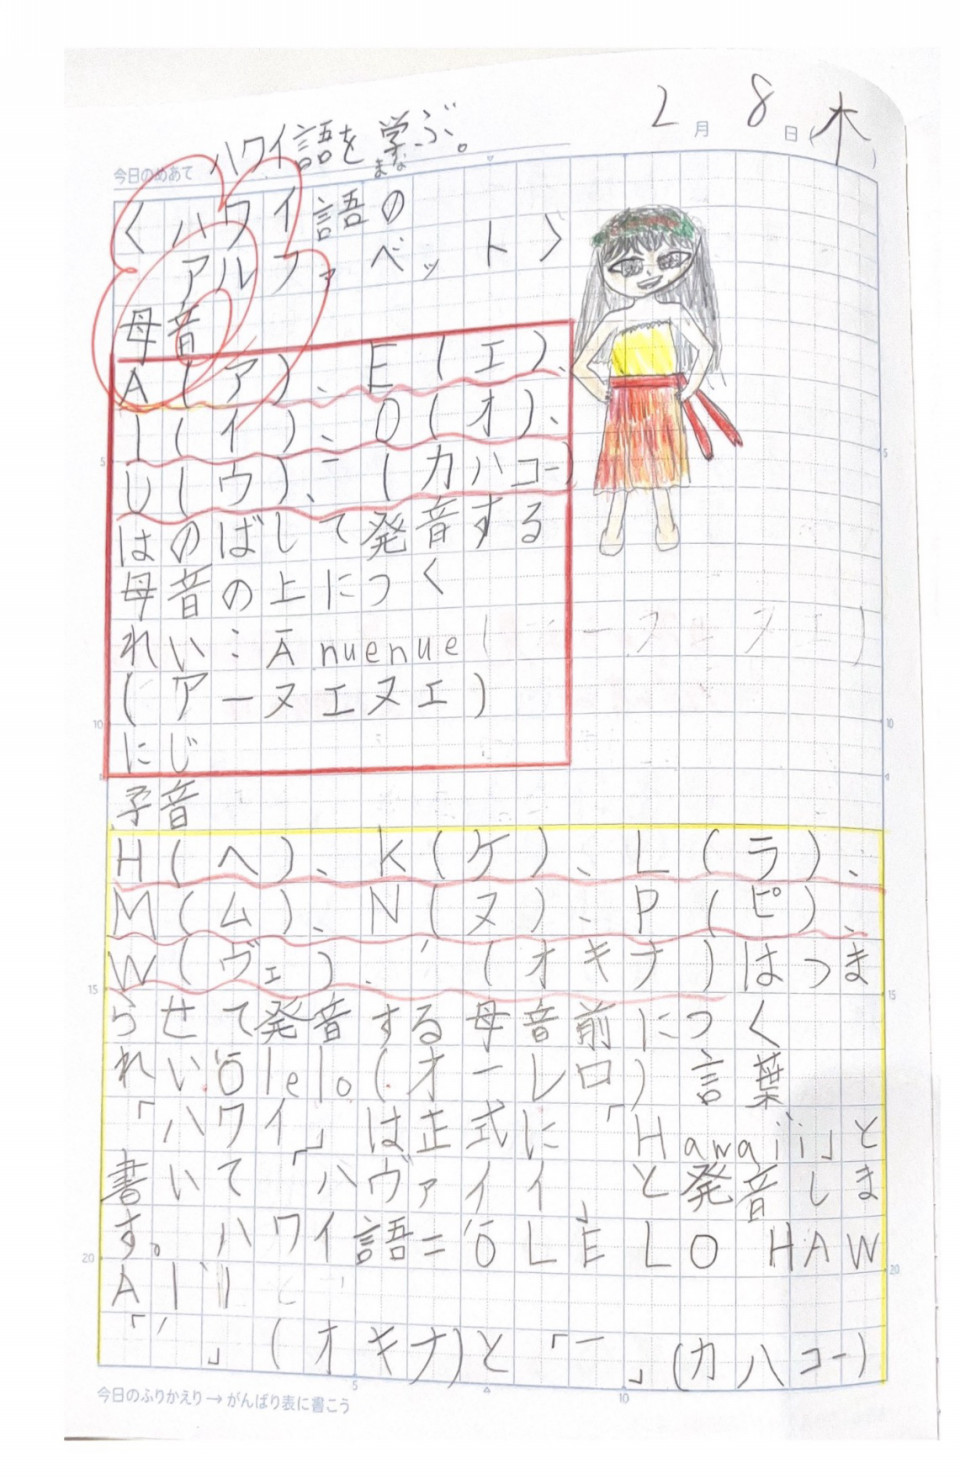 2月8日(木)
今日のめあて ハワイ語を学ぶ。
まな
<ハワイ語の
アルファベット>
母音
A(ア)、E(エ)、
I(イ)、O(オ)、
U(ウ)、ー(カハコー)
はのばして発音する
母音の上につく
れい:Ānuenue
(アーヌエヌエ)
にじ
子音
H(ヘ)、K(ケ)、L(ラ)、
M(ム)、N(ヌ)、P(ピ)、
W(ヴェ)、ʻ(オキナ)はつま
らせて発音する母音前につく
れいʻŌlelo(オーレロ)言葉
「ハワイ」は正式に「Hawaiʻi」と
書いて「ハヴァイイ」と発音しま
す。ハワイ語=ʻŌLELO HAW
AIʻI
「ʻ」(オキナ)と「ー」(カハコー)
今日のふりかえり→がんばり表に書こう
5
10
15
20
5
10
15
20
5
10